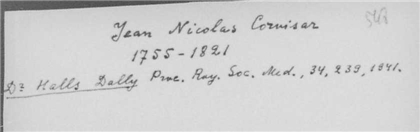 Jean Nicolas Corvisar
1755-1821
Dr Halls Dally Proc. Roy. Soc. Med., 34, 239, 1941.